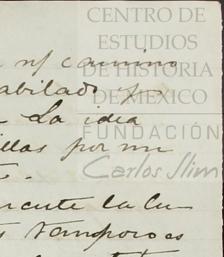 CENTRO DE
ESTUDIOS
DE HISTORIA
DE MEXICO
FUNDACIÓN
Carlos Slim
n/ camino
abilado
La idea
illas por mi
ente la Cu
tampoco es